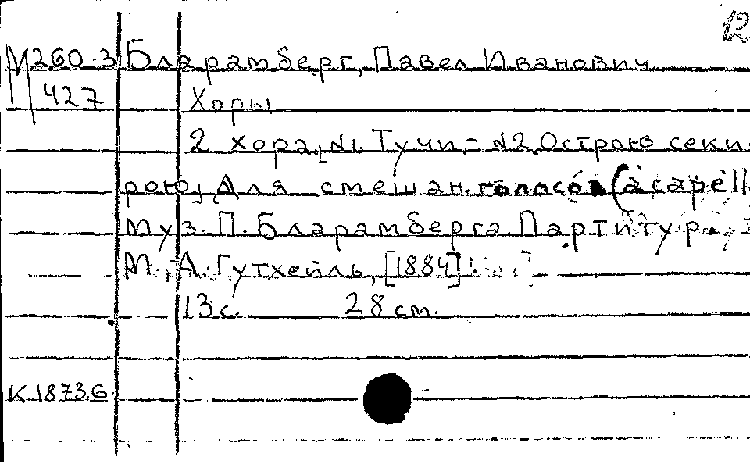 12
М260-3 Бларамберг, Павел Иванович
427 Хоры
2 хора, [№1. Тучи. - №2. Острою секи-
рою], Для смешан. голосов (a capell
Муз. П. Бларамберга Партитура.
М., А. Гутхейль, [1884].
13с. 28 см.
К 1873.6